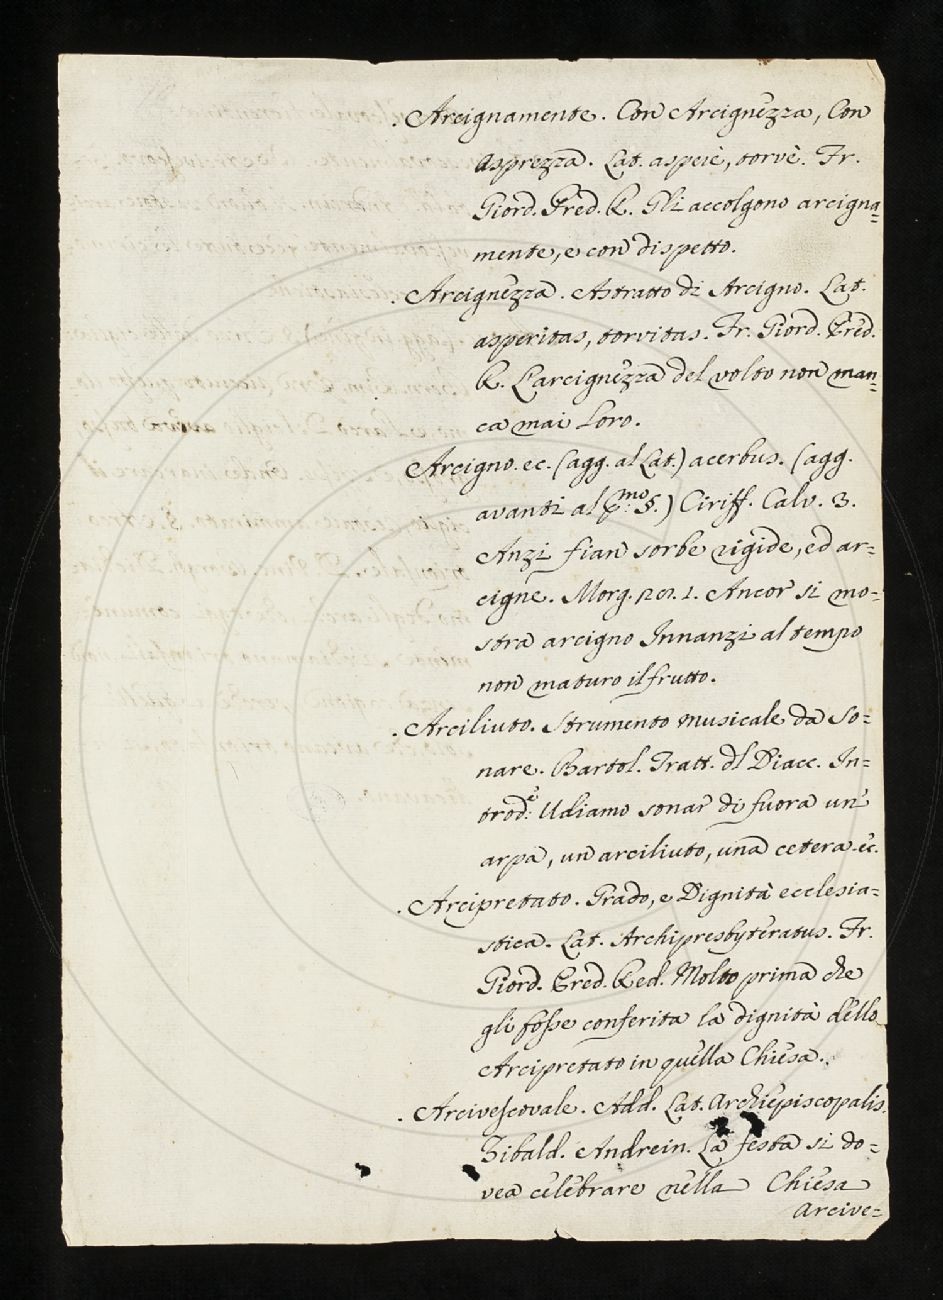 . Arcignamente. Con Arcignezza, Con
Asprezza. Lat. asperè, torvè. Fr.
Giord. Pred. R. Gli accolgono arcigna=
mente, e con dispetto.
. Arcignezza. Astratto di Arcigno. Lat.
asperitas, torvitas. Fr. Giord. Pred.
R. L'arcignezza del volto non man=
ca mai loro.
Arcigno. ec. (agg. al Lat.) acerbus. (agg.
avanti al p.mo §.) Ciriff. Calv. 3.
Anzi fian sorbe rigide, ed ar=
cigne. Morg. 1. Ancor si mo=
stra arcigno Innanzi al tempo
non maturo il frutto.
. Arciliuto. Strumento musicale da So=
nare. Bartol. Tratt. dl Diacc. In=
trod.e Udiamo sonar di fuora un'
arpa, un arciliuto, una cetera ec.
. Arcipretato. Grado, e Dignità ecclesia=
stica. Lat. Archipresbyteratus. Fr.
Giord. Pred. Red. Molto prima che
gli fosse conferita la dignità dello
Arcipretato in quella Chiesa.
. Arcivescovale. Add. Lat. Archiepiscopalis
Zibald. Andrein. La festa si do=
vea celebrare nella Chiesa
Arcive=